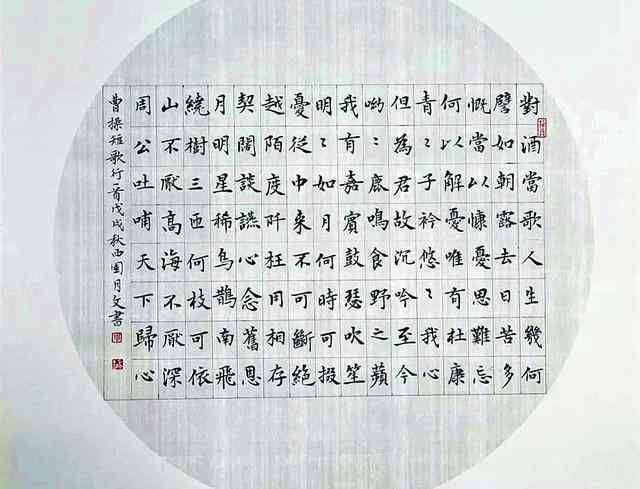 對酒當歌人生幾何
譬如朝露去日苦多
慨當以慷憂思難忘
何以解憂唯有杜康
青〻子衿悠〻我心
但為君故沉吟至今
呦〻鹿鳴食野之蘋
我有嘉賓鼓瑟吹笙
明〻如月何時可掇
憂從中來不可斷絕
越陌度阡枉用相存
契闊談讌心念舊恩
月明星稀烏鵲南飛
繞樹三匝何枝可依
山不厭高海不厭深
周公吐哺天下歸心
曹操短歌行一首戊戌秋西園月文書